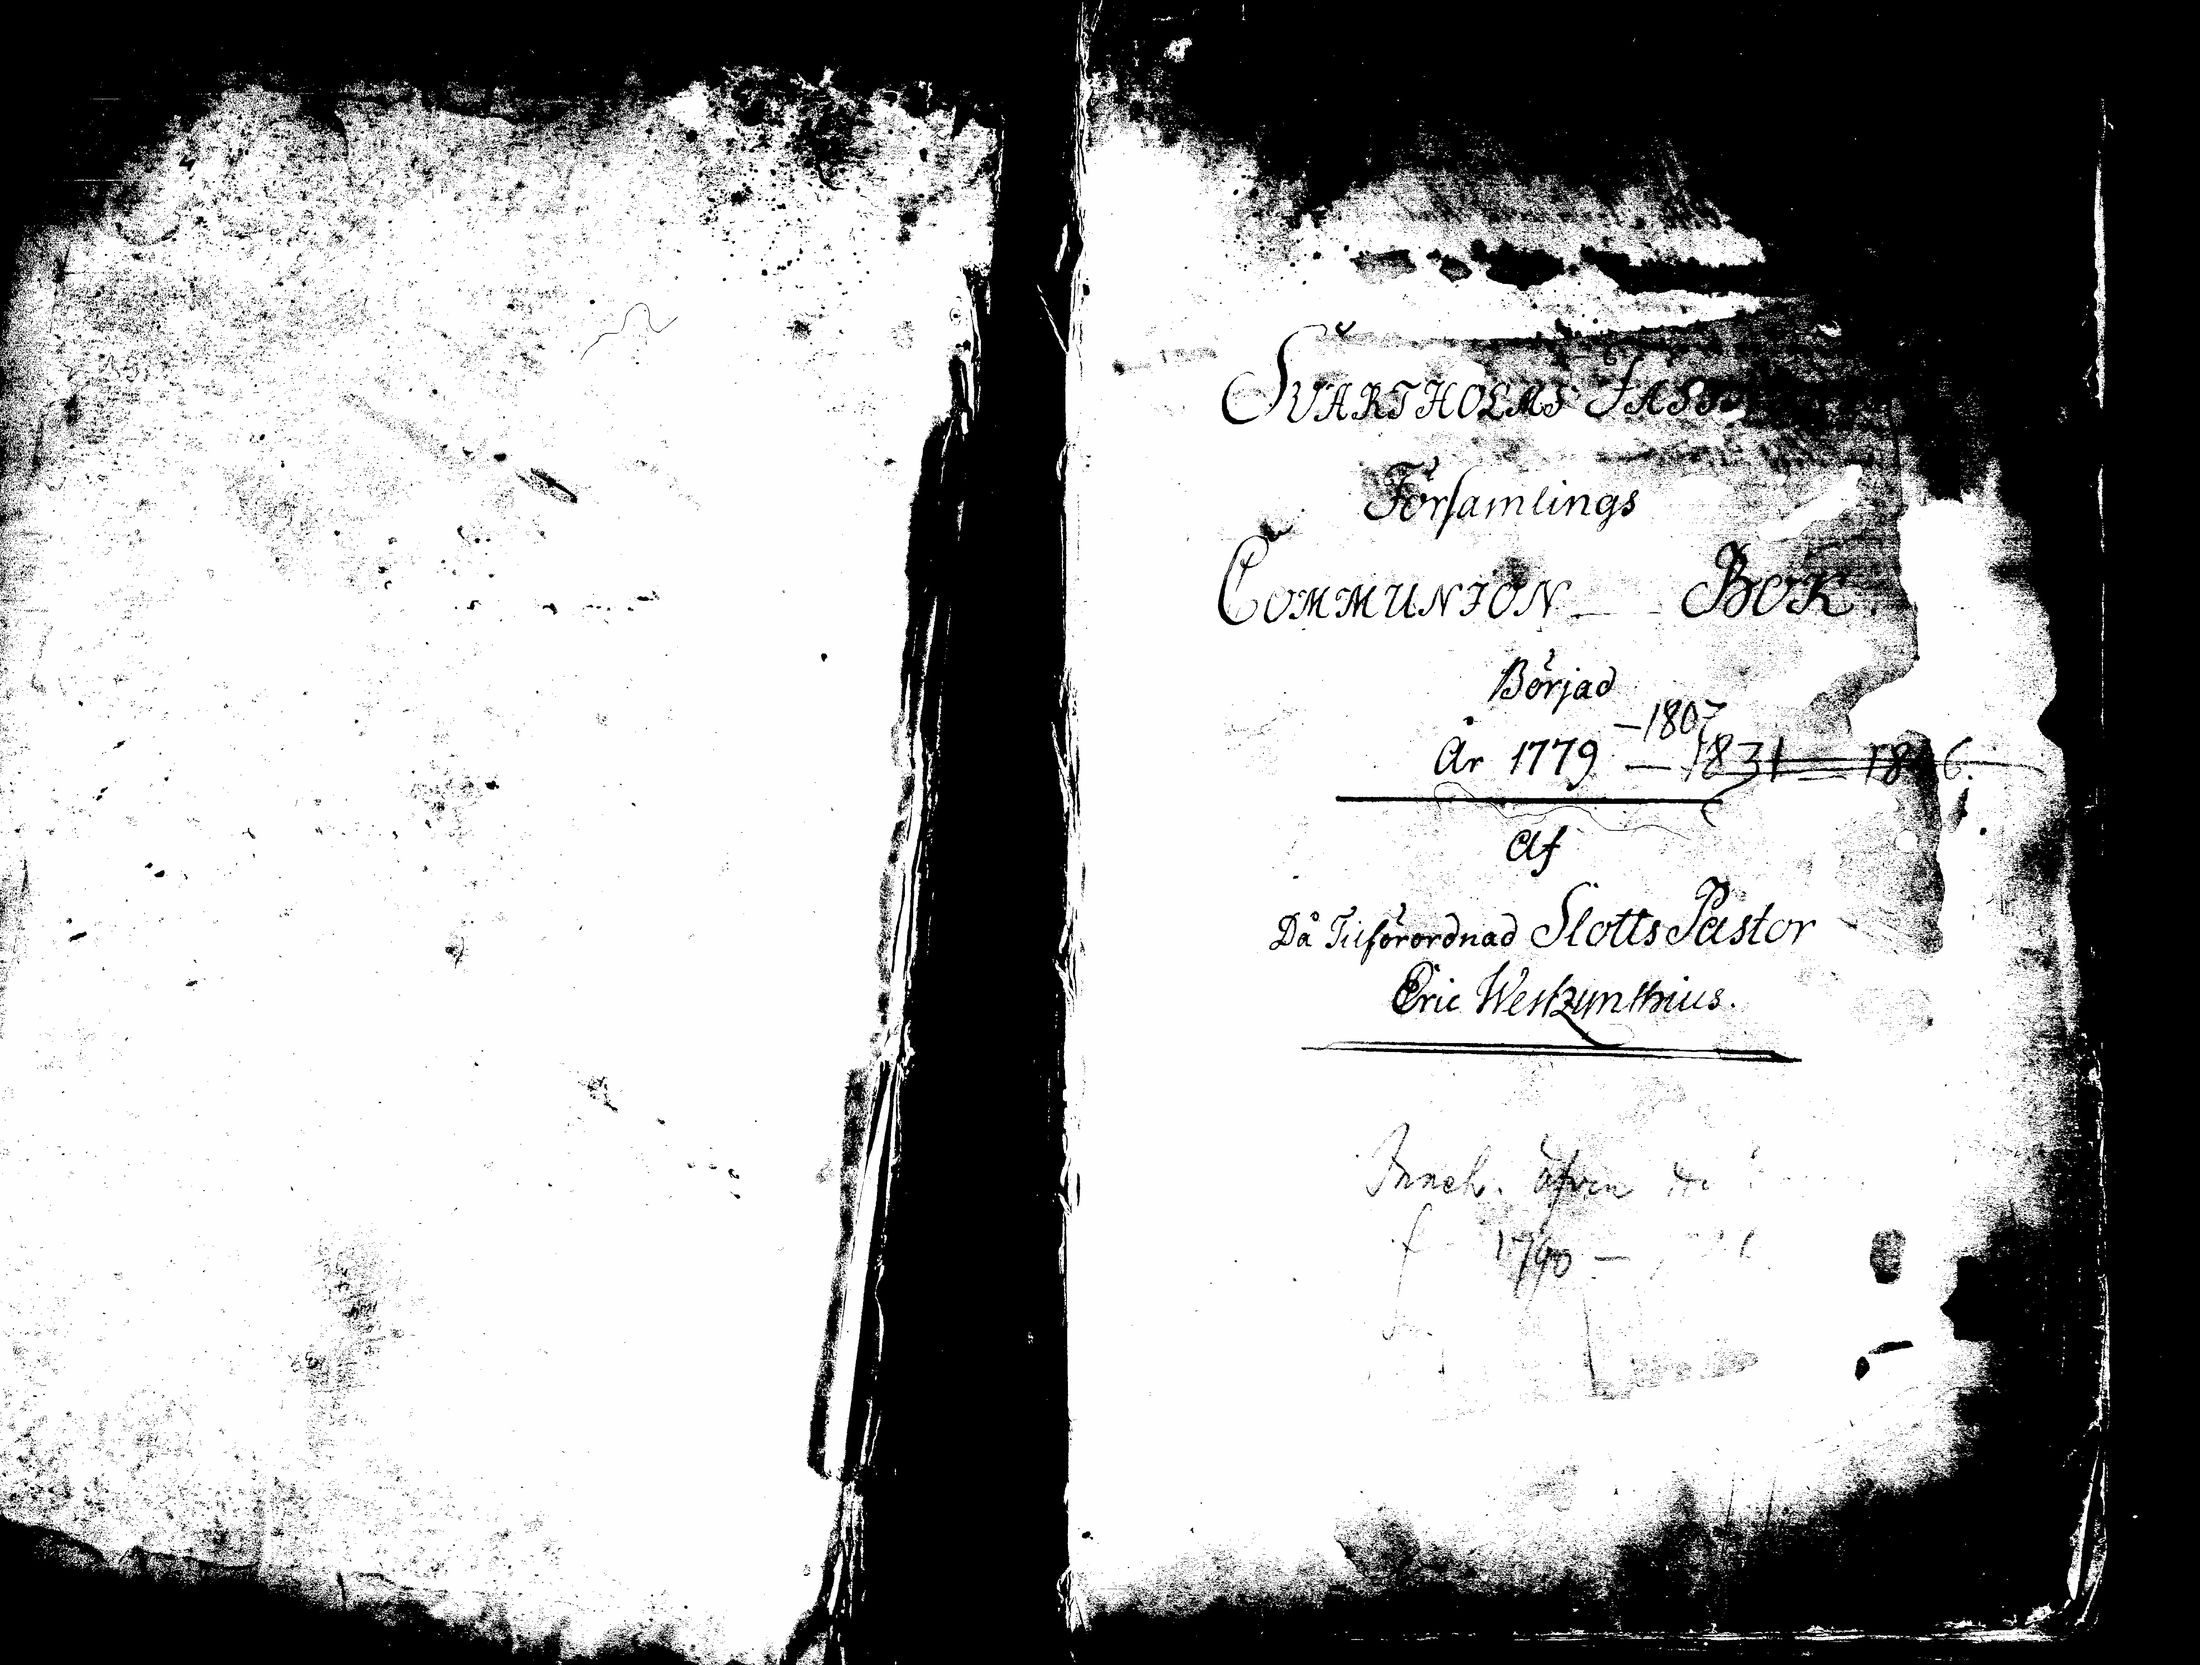 SVARTHOLMS FÄST
Församlings
COMMUNION — BOK.
Börjad
—1807
År 1779 — 1831 — 1846.
Af
Då Tilförordnad Slotts Pastor
Eric Westzynthius.
Inneh. äfven
1790 —